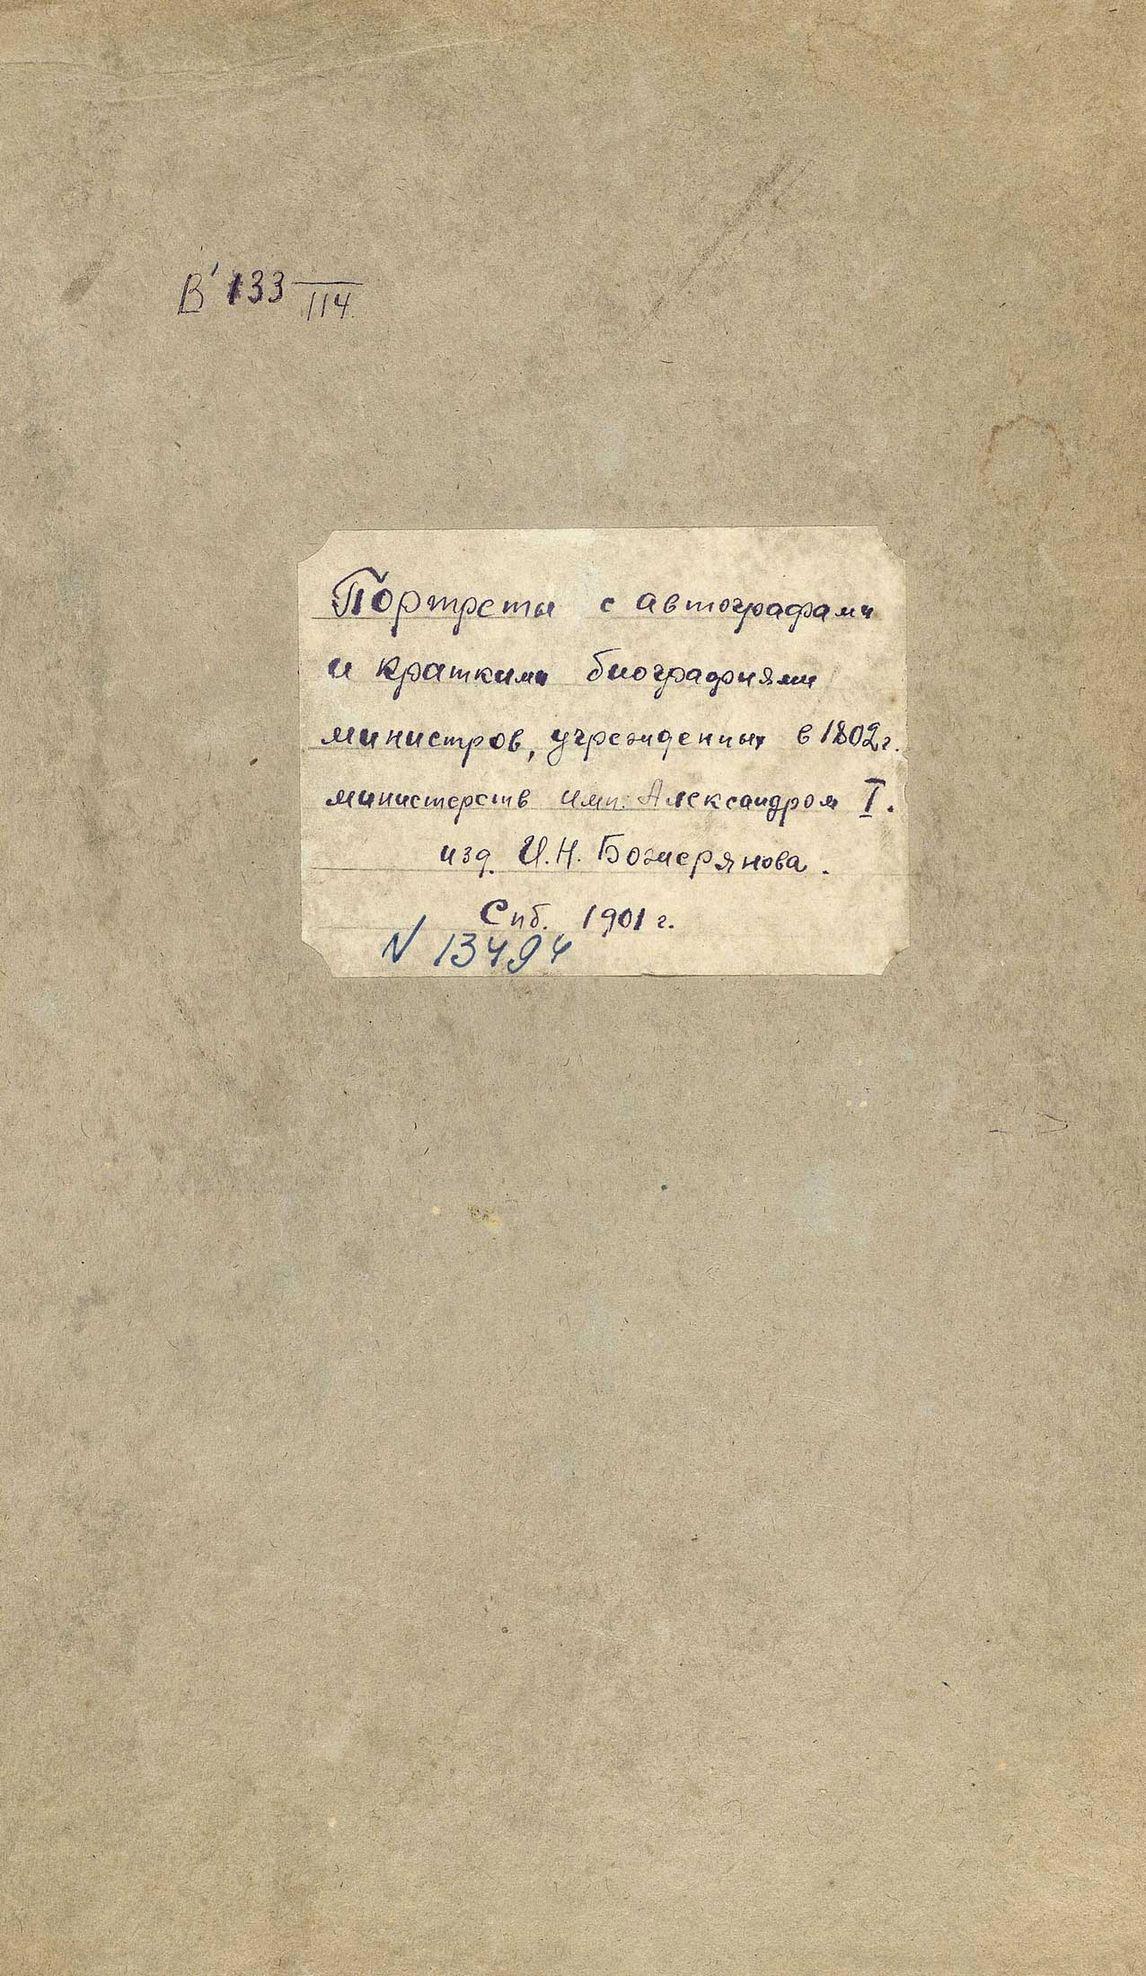 В' 133/114.
Портреты с автографами
и краткими биографиями
министров, учрежденных в 1802 г.
министерств имп. Александром I.
изд. И. Н. Божерянова.
Спб. 1901 г.
N 13494